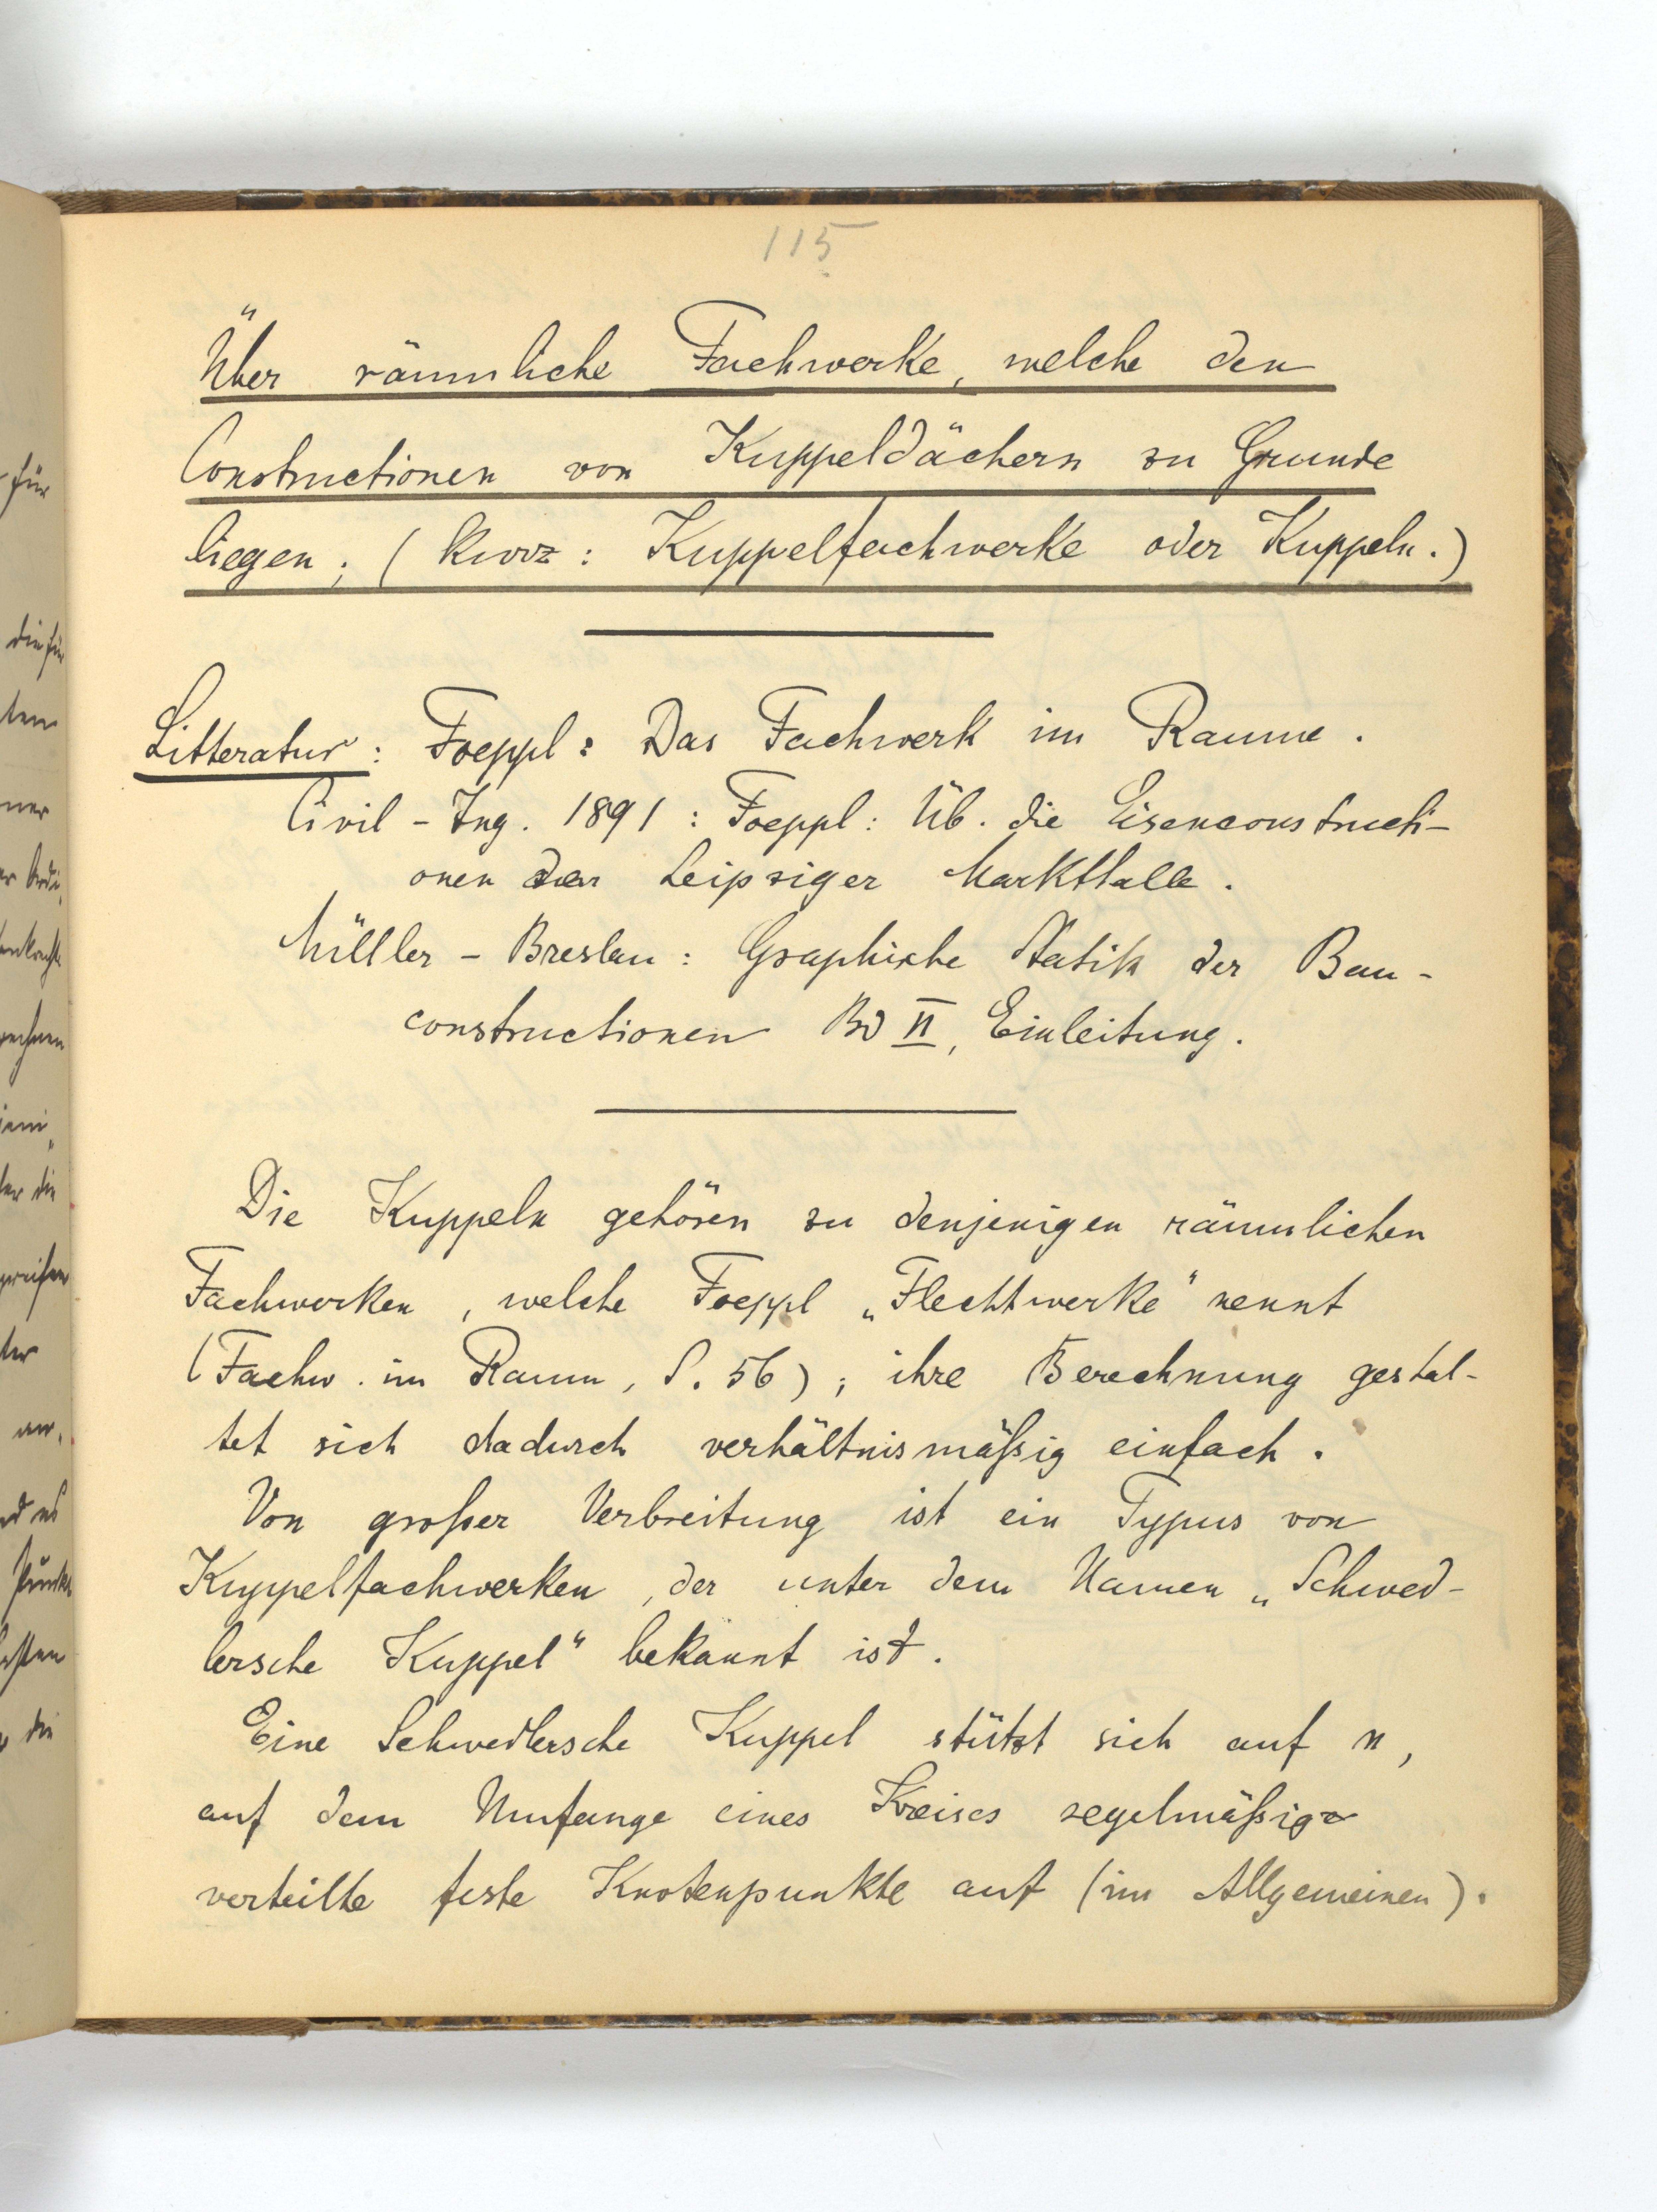 115
Über räumliche Fachwerke, welche den
Constructionen von Kuppeldächern zu Grunde
liegen; (kurz: Kuppelfachwerke oder Kuppeln.)
Litteratur: Foeppl: Das Fachwerk im Raume.
Civil-Ing. 1891: Foeppl: Üb. die Eisenconstructi-
onen der Leipziger Markthalle.
Müller-Breslau: Graphische Statik der Bau-
constructionen Bd II, Einleitung.
Die Kuppeln gehören zu denjenigen räumlichen
Fachwerken, welche Foeppl „Flechtwerke“ nennt
(Fachw. im Raum, S. 56); ihre Berechnung gestal-
tet sich dadurch verhältnismäßig einfach.
Von großer Verbreitung ist ein Typus von
Kuppelfachwerken, der unter dem Namen „Schwed-
lersche Kuppel“ bekannt ist.
Eine Schwedlersche Kuppel stützt sich auf n,
auf dem Umfange eines Kreises regelmäßig
verteilte feste Knotenpunkte auf (im Allgemeinen).